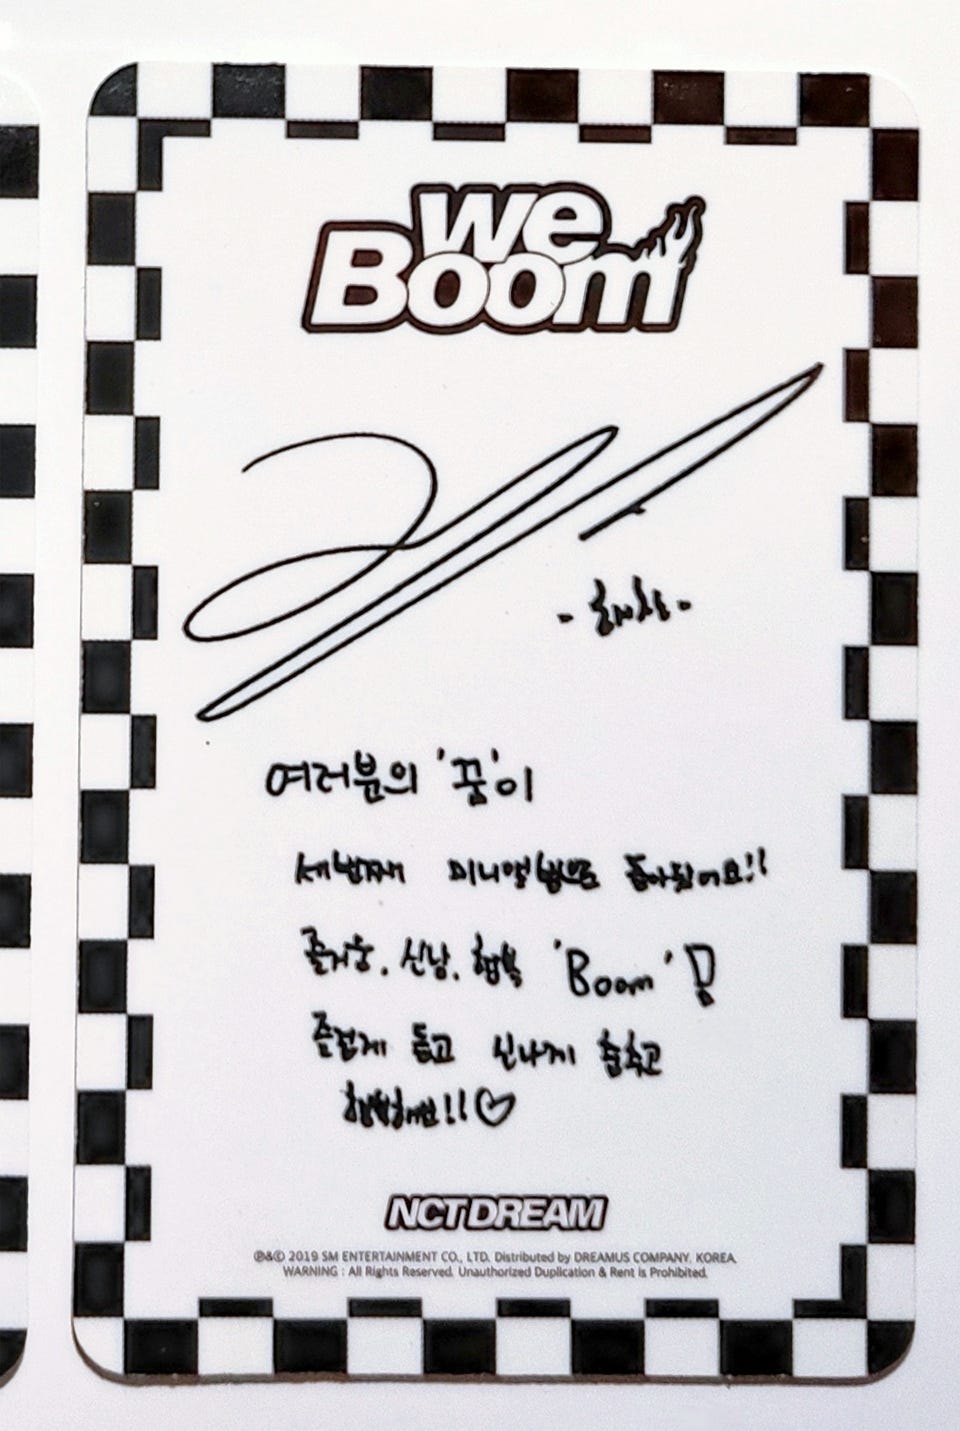 We
Boom
- 해찬 -
여러분의 '꿈'이
세번째 미니앨범으로 돌아왔어요!!
즐거움, 신남, 행복 'Boom'!
즐겁게 듣고 신나게 춤추고
!!♡
NCT DREAM
℗&© 2019 SM ENTERTAINMENT CO., LTD. Distributed by DREAMUS COMPANY. KOREA.
WARNING : All Rights Reserved. Unauthorized Duplication & Rent is Prohibited.